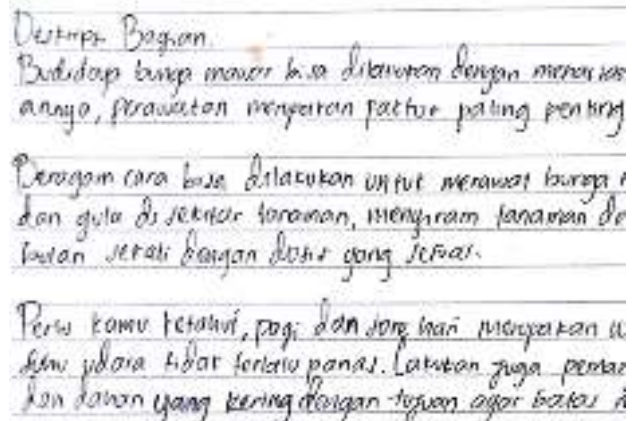 Deskripsi Bagian.
Budidaya bunga mawar bisa dilakukan dengan
annya, perawatan merupakan faktor paling penting
Beragam cara bisa dilakukan untuk merawat bunga
dan gula di sekitar tanaman, menyiram tanaman
bulan sekali dengan dosis yang sesuai.
Perlu kamu ketahui, pagi dan sore hari merupakan
suhu udara tidak terlalu panas. Lakukan juga
dan dahan yang kering dengan tujuan agar